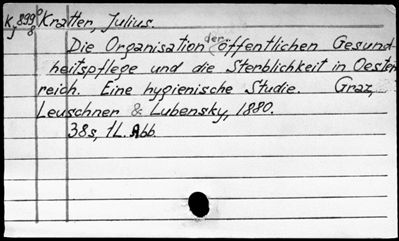 K,899g Kratter, Julius.
Die Organisation der öffentlichen Gesund-
heitspflege und die Sterblichkeit in Oester
reich. Eine hygienische Studie. Graz,
Leuschner & Lubensky, 1880.
38s, 1L. Abb.